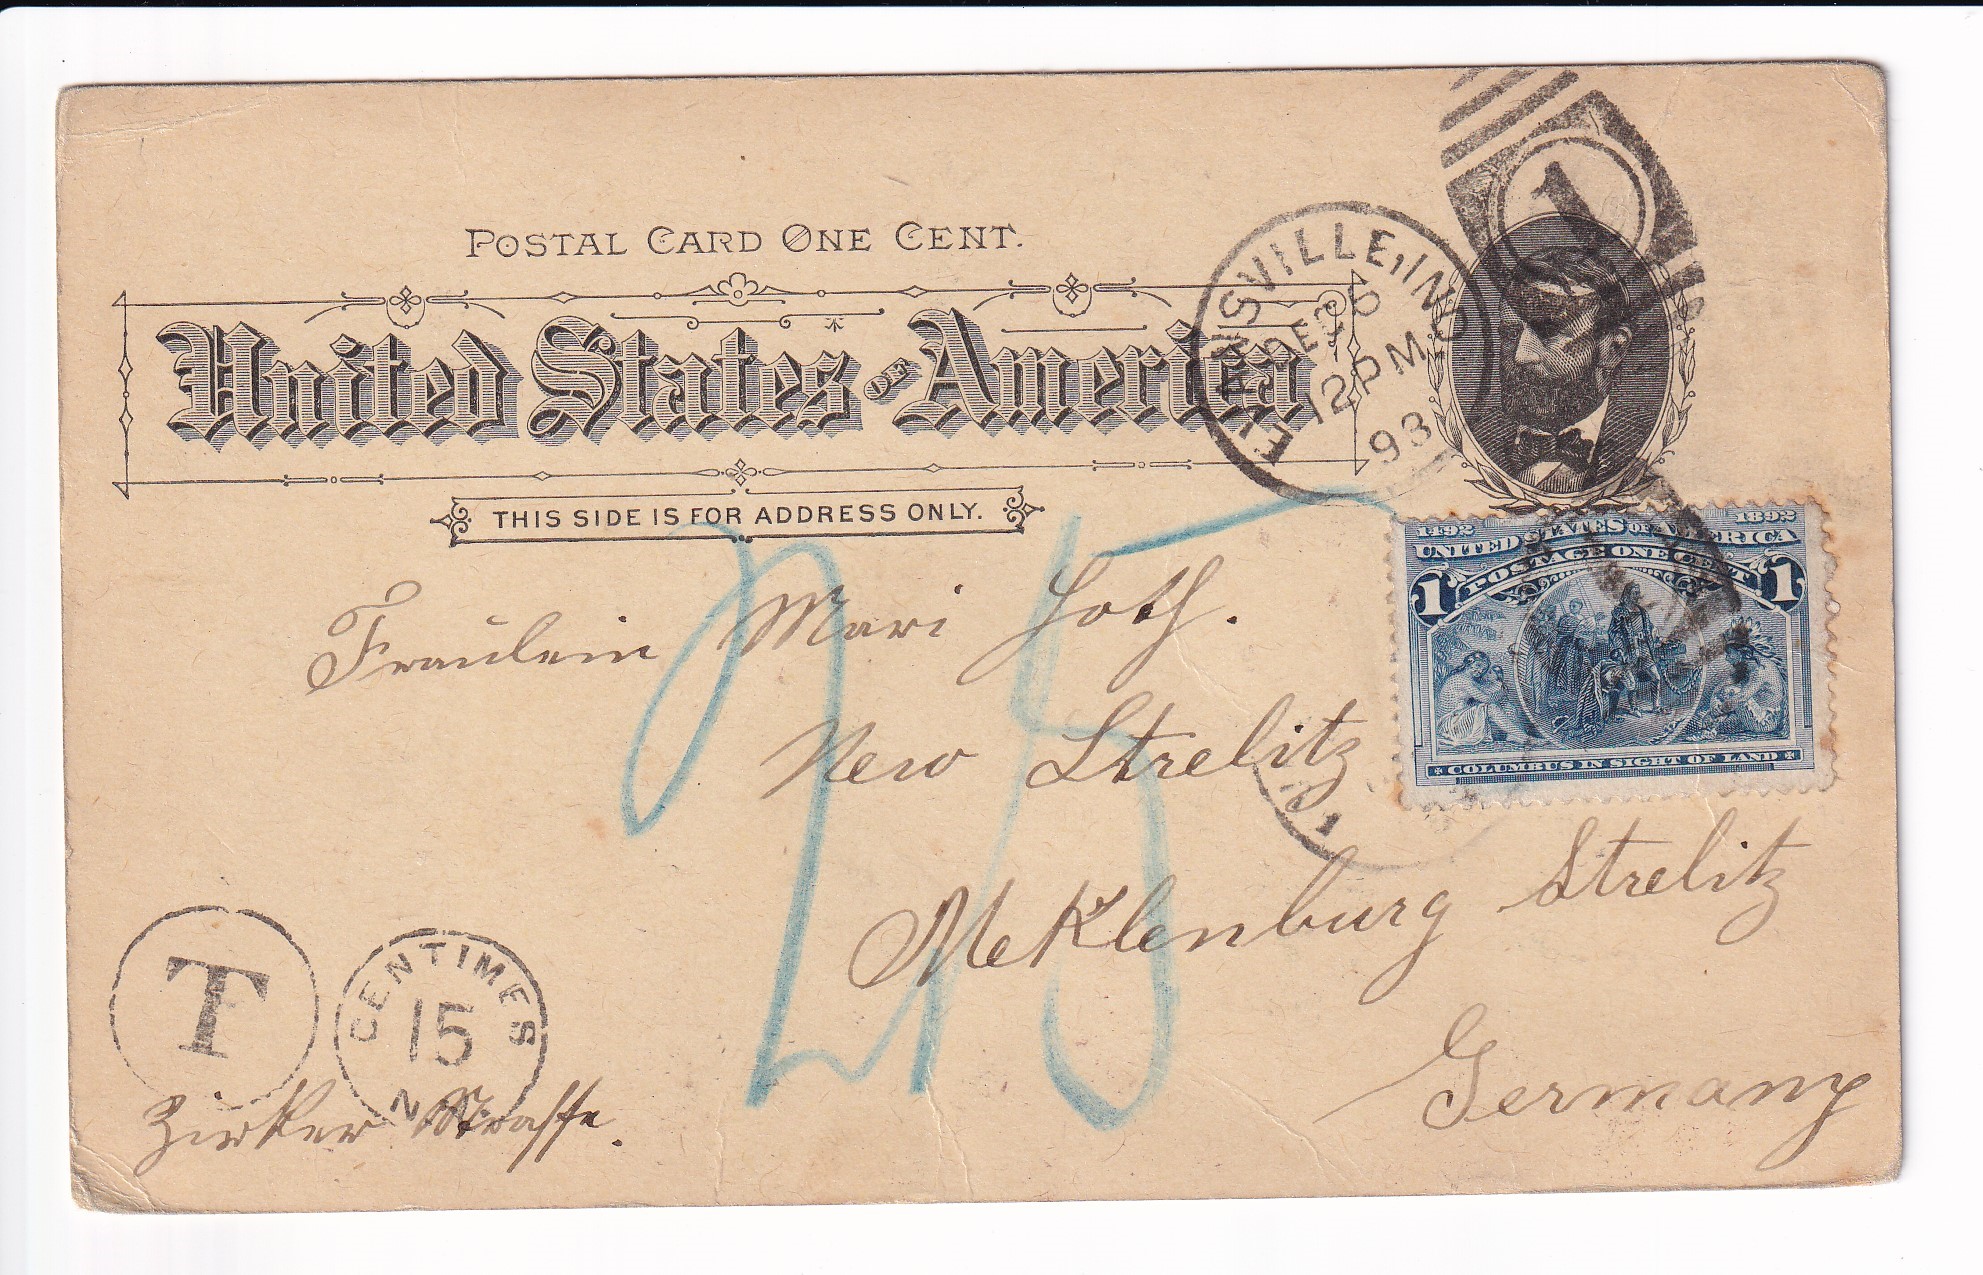 POSTAL CARD ONE CENT.
United States OF America
THIS SIDE IS FOR ADDRESS ONLY.
EVANSVILLE, IND
DEC 6
12 PM
93
1
1492 1892
UNITED STATES OF AMERICA
POSTAGE ONE CENT
1 1
COLUMBUS IN SIGHT OF LAND
Fräulein Mari Loth.
New Strelitz
Meklenburg Strelitz
Germany
25
T
CENTIMES
15
N
Strasse.